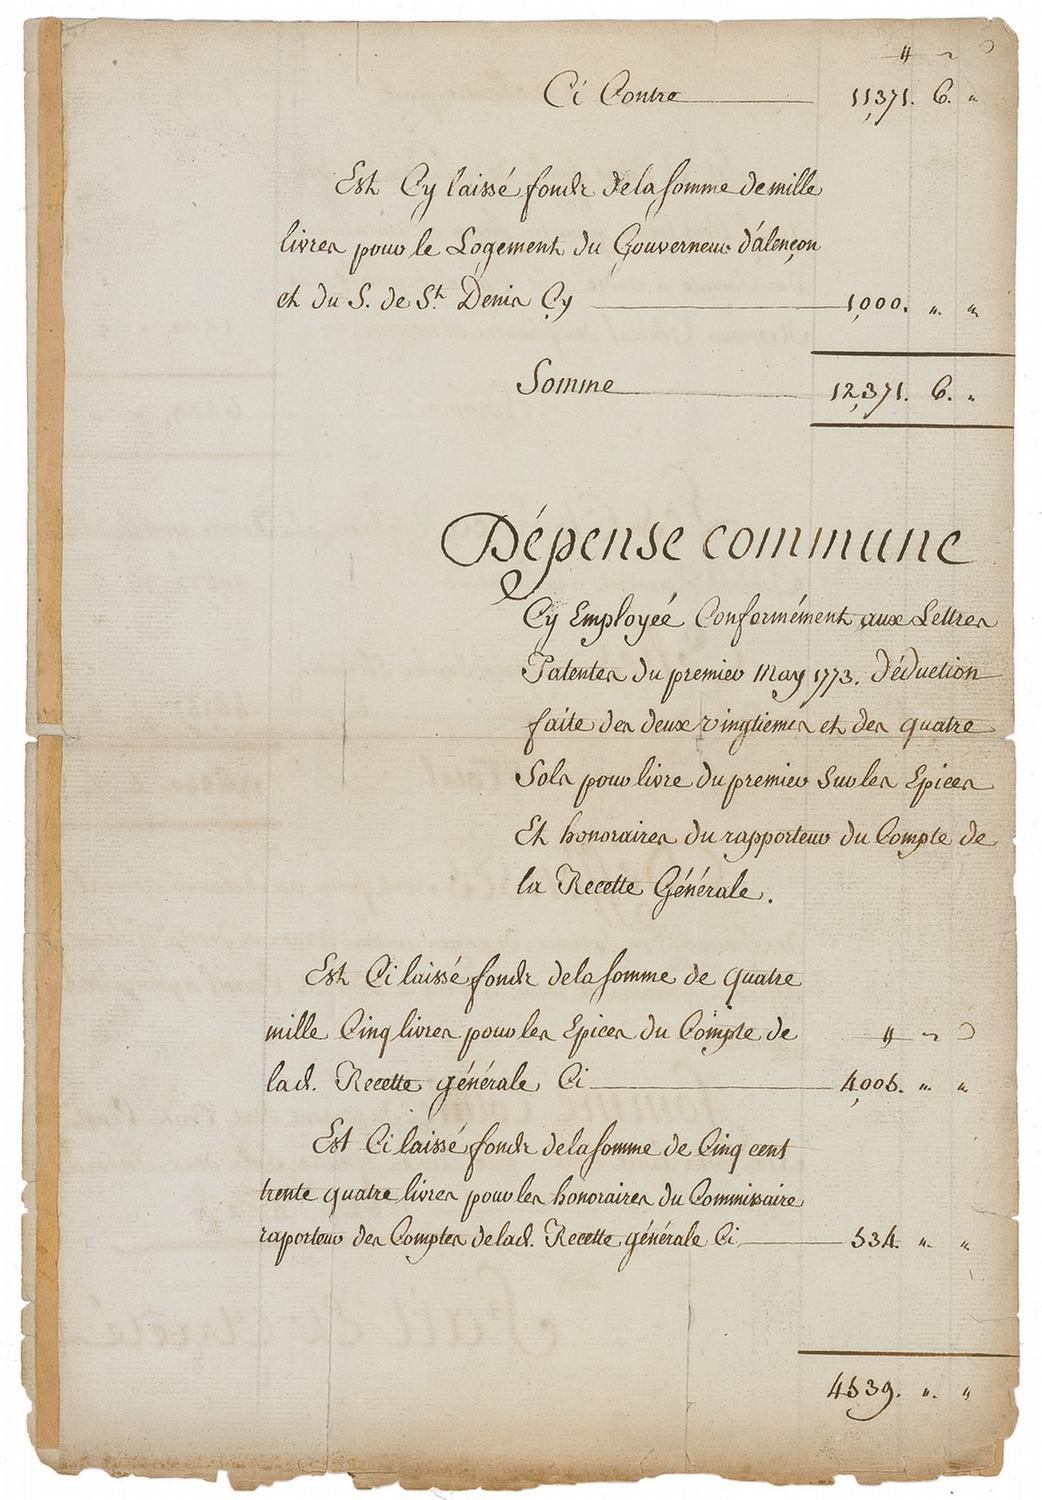 ₶ s d
Ci Contre 11,371. 6. "
Est Cy laissé fonds de la somme de mille
livres pour le Logement du Gouverneur d'alençon
et du S. de St. Denis Cy 1,000. " "
Somme 12,371. 6. "
Dépense commune
Cy Employée Conformément aux Lettres
Patentes du premier May 1773. Déduction
faite des deux vingtiemes et des quatre
Sols pour livre du premier Sur les Epices
Et honoraires du rapporteur du Compte de
la Recette Générale.
Est Ci laissé fonds de la somme de quatre
mille Cinq livres pour les Epices du Compte de ₶ s d
lad. Recette générale Ci 4,005. " "
Est Ci laissé fonds de la somme de Cinq cent
trente quatre livres pour les honoraires du Commissaire
raporteur des Comptes de lad. Recette générale Ci 534. " "
4539. " "